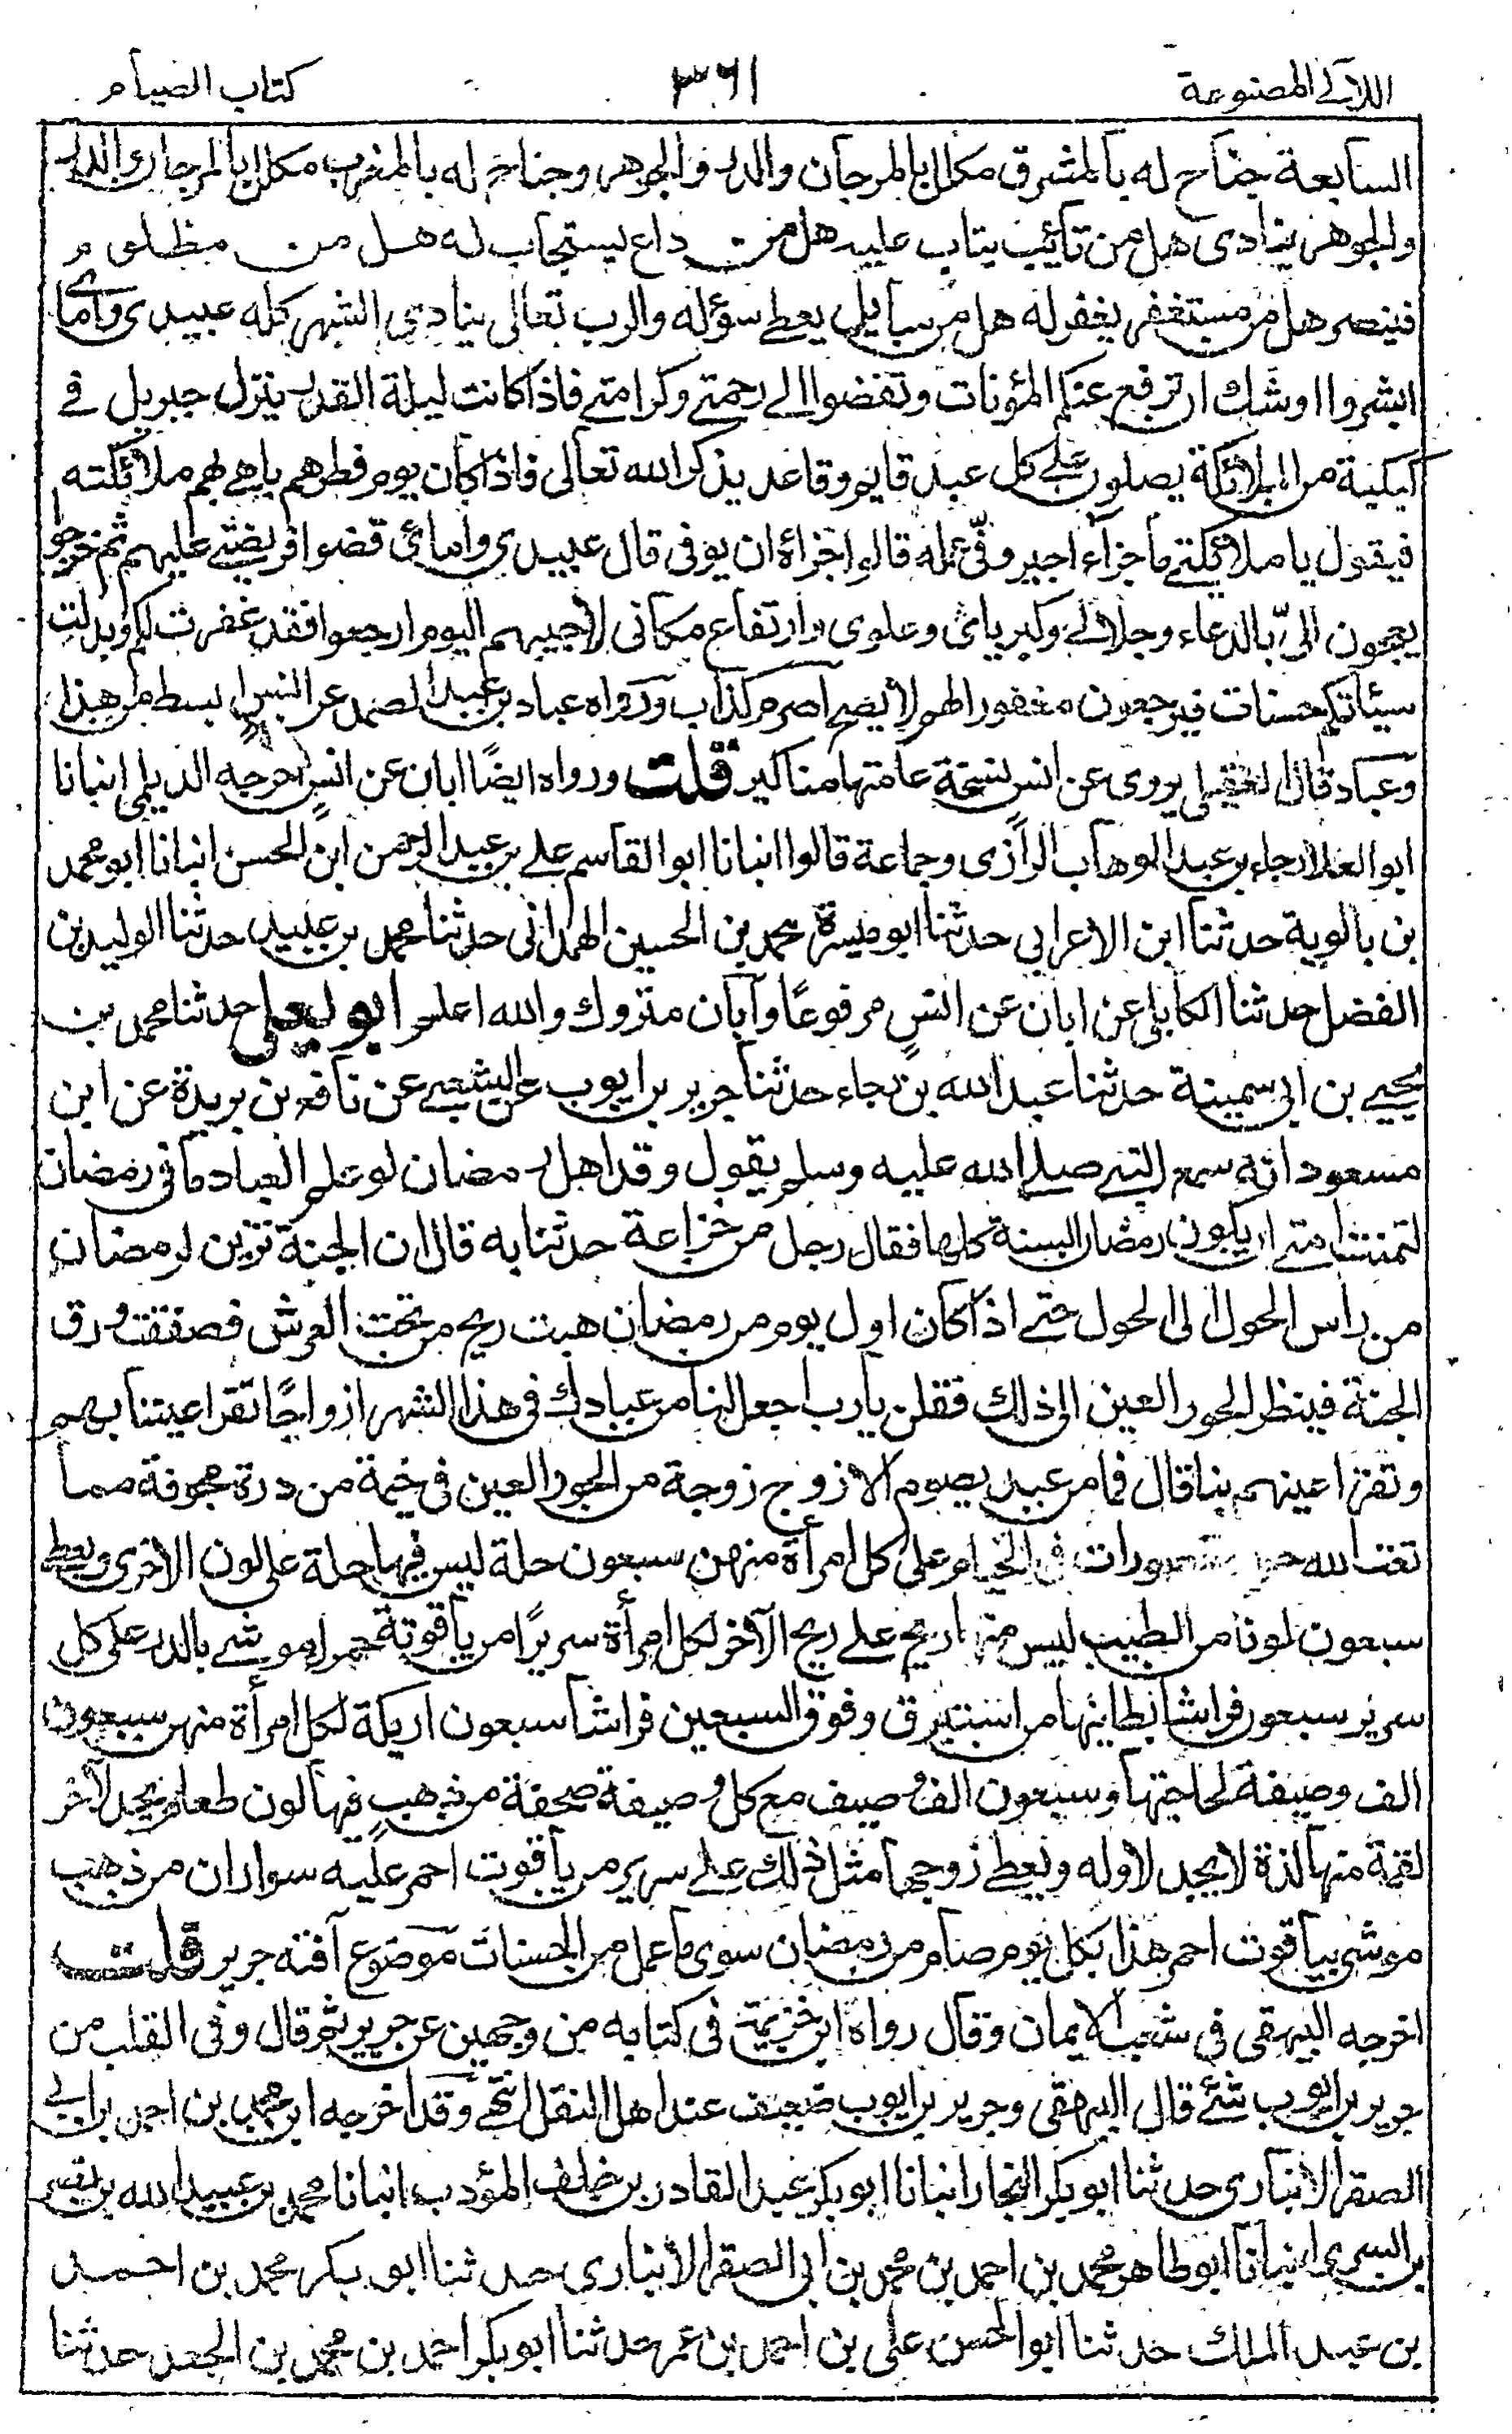 اللآلى المصنوعة
٣٦١
كتاب الصيام
السابعة جناح له بالمشرق مكلل بالمرجان والدر والجوهر وجناح له بالمغرب مكلل بالمرجان والدر
والجوهر ينادى هل من تائب يتاب عليه هل من داع يستجاب له هل من مظلوم
فينصر هل من مستغفر يغفر له هل من سايل يعطى سؤله والرب تعالى ينادى الشهر كله عبيدى وامائى
ابشروا اوشك ان ترفع عنكم المؤنات وتفضوا الى رحمتى وكرامتى فاذا كانت ليلة القدر ينزل جبريل فى
كبكبة من الملائكة يصلون على كل عبد قايم وقاعد يذكر الله تعالى فاذا كان يوم فطرهم باهى بهم ملائكته
فيقول يا ملائكتى ما جزاء اجير وفّى عمله قالوا جزاؤه ان يوفى قال عبيدى وامائى قضوا فريضتى عليهم ثم خرجوا
يعجون الىّ بالدعاء وجلالى وكبريائى وعلوى وارتفاع مكانى لاجيبهم اليوم ارجعوا فقد غفرت لكم وبدلت
سيئاتكم حسنات فيرجعون مغفورا لهم لا يصح اصرم كذاب ورواه عباد بن عبد الصمد عن انس بابسط من هذا
وعباد قال العقيلى يروى عن انس نسخة عامتها مناكير قلت ورواه ايضًا ابان عن انس اخرجه الديلمى انبانا
ابو العلا رجاء بن عبد الوهاب الرازى وجماعة قالوا انبانا ابو القاسم على بن عبد الرحمن ابن الحسن انبانا ابو محمد
بن بالوية حدثنا ابن الاعرابى حدثنا ابو ميسرة محمد بن الحسين الهمدانى حدثنا محمد بن عبيد حدثنا الوليد بن
الفضل حدثنا الكابلى عن ابان عن انس مرفوعًا وآبان متروك والله اعلم ابو يعلى حدثنا محمد بن
يحيى بن ابى سمينة حدثنا عبد الله بن رجاء حدثنا جرير بن ايوب عن الشعبى عن نافع بن بريدة عن ابن
مسعود انه سمع النبى صلى الله عليه وسلم يقول وقد اهل رمضان لو علم العباد ما فى رمضان
لتمنت امتى ان يكون رمضان السنة كلها فقال رجل من خزاعة حدثنا به قال ان الجنة تزين لرمضان
من راس الحول الى الحول حتى اذا كان اول يوم من رمضان هبت ريح من تحت العرش فصفقت ورق
الجنة فينظر الحور العين الى ذلك فقلن يارب اجعل لنا من عبادك فى هذا الشهر ازواجًا تقر اعيننا بهم
وتقر اعينهم بنا قال فما من عبد يصوم الا زوج زوجة من الحور العين فى خيمة من درة مجوفة مما
نعت الله حور مقصورات فى الخيام على كل امرأة منهن سبعون حلة ليس فيها حلة على لون الاخرى ويعطى
سبعون لونا من الطيب ليس منها ريح على ريح الآخر لكل امرأة سريرًا من ياقوتة حمرا موشى بالدر على كل
سرير سبعون فراشا بطاينها من استبرق وفوق السبعين فراشا سبعون اريكة لكل امرأة منهن سبعون
الف وصيفة لحاجتها وسبعون الف وصيف مع كل وصيفة صحفة من ذهب فيها لون طعام يجد لآخر
لقمة منها لذة لا يجد لاوله ويعطى زوجها مثل ذلك على سرير من ياقوت احمر عليه سواران من ذهب
موشى بياقوت احمر هذا بكل يوم صام من رمضان سوى ما عمل من الحسنات موضوع آفته جرير قلت
اخرجه البيهقى فى شعب الايمان وقال رواه ابن خزيمة فى كتابه من وجهين عن جرير ثم قال وفى القلب من
جرير بن ايوب شئ قال البيهقى وجرير بن ايوب ضعيف عند اهل النقل انتهى وقد اخرجه ابن محمد بن احمد بن ابى
الصقر الانبارى حدثنا ابو بكر النجار انبانا ابو بكر عبد القادر بن خلف المؤدب انبانا محمد بن عبيد الله بن
بن السرى انبانا ابو طاهر محمد بن احمد بن محمد بن ابى الصقر الأنبارى حدثنا ابو بكر محمد بن احمد
بن عبد الملك حدثنا ابو الحسن على بن احمد بن عمر حدثنا ابو بكر احمد بن محمد بن الجعد حدثنا